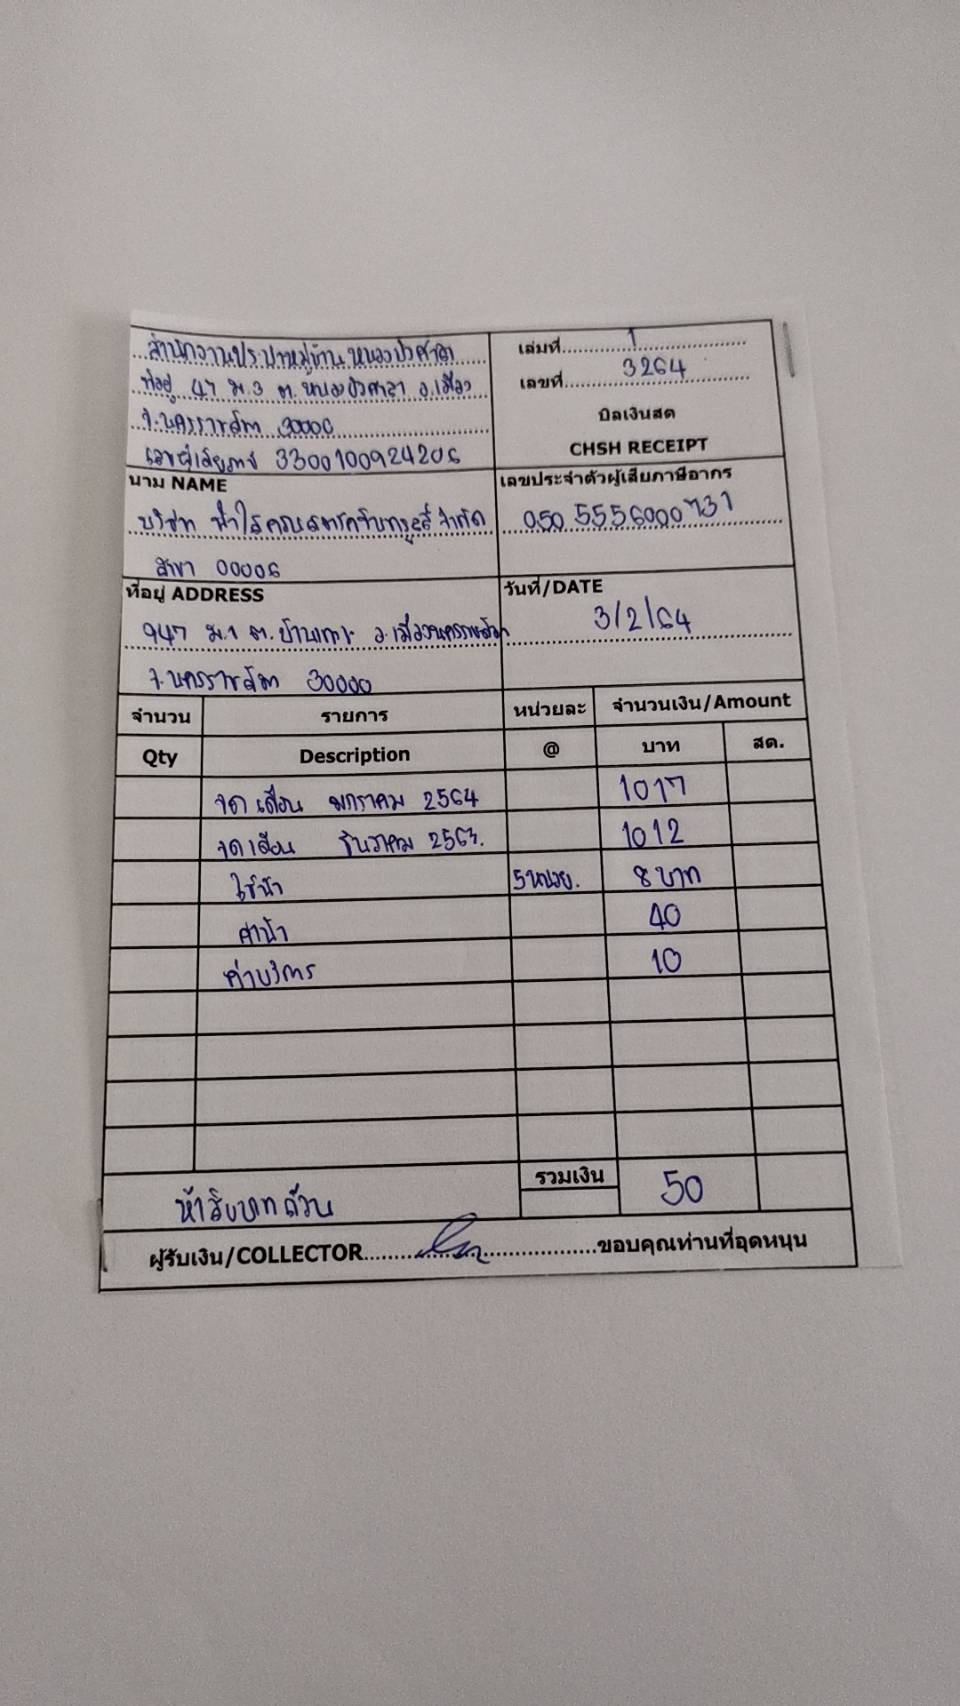 สำนักงานประปาหมู่บ้าน หนองบัวศาลา
ที่อยู่ 47 ม.3 ต.หนองบัวศาลา อ.เมือง
จ.นครราชสีมา 30000
เลขผู้เสียภาษี 3300100924206
เล่มที่ 1
เลขที่ 3264
บิลเงินสด
CHSH RECEIPT
นาม NAME
บริษัท ฟ้าใสคอนสทรัคชั่น จำกัด
สาขา 00006
เลขประจำตัวผู้เสียภาษีอากร
050 5556000731
ที่อยู่ ADDRESS
947 ม.1 ต.บ้านเกาะ อ.เมืองนครราชสีมา
จ.นครราชสีมา 30000
วันที่/DATE
3/2/64
จำนวน รายการ หน่วยละ จำนวนเงิน/Amount
Qty Description @ บาท สต.
จดเดือน มกราคม 2564 1017
จดเดือน ธันวาคม 2563. 1012
ใช้น้ำ 5 หน่วย. 8 บาท
ค่าน้ำ 40
ค่าบริการ 10
รวมเงิน 50
ห้าสิบบาทถ้วน
ผู้รับเงิน/COLLECTOR ขอบคุณท่านที่อุดหนุน